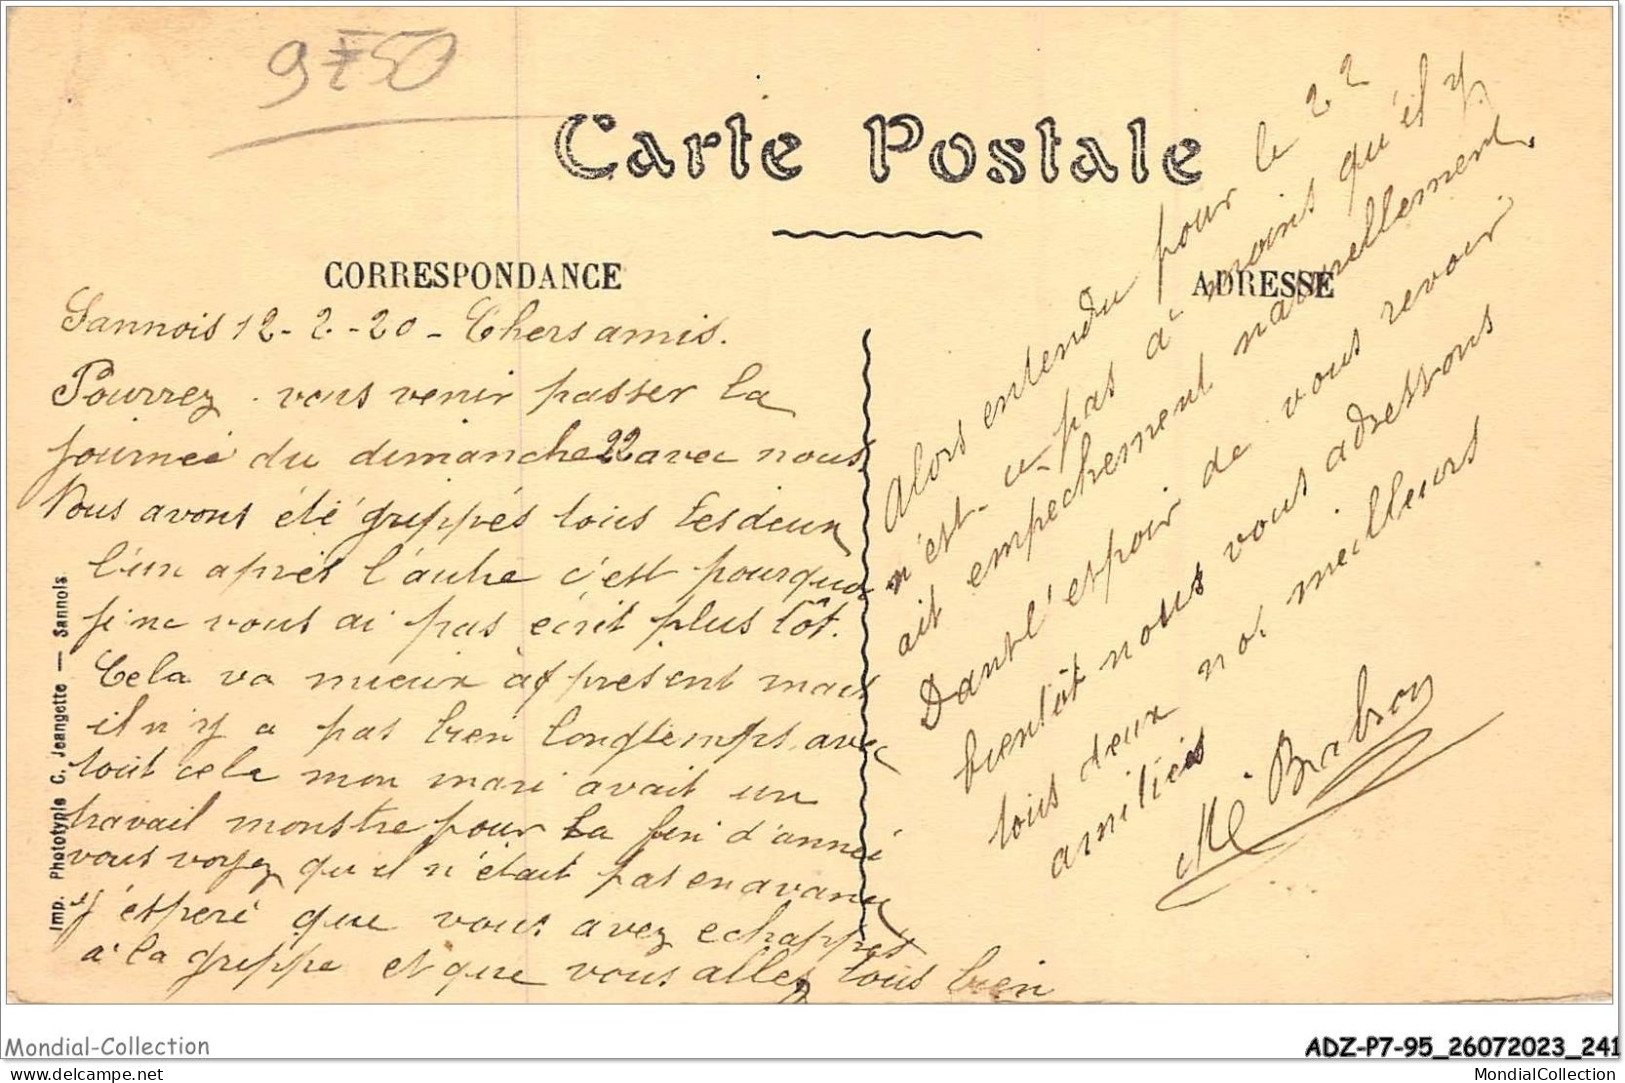 9F50
Carte Postale
CORRESPONDANCE
ADRESSE
Sannois 12-2-20 - Chers amis.
Pourrez-vous venir passer la
journée du dimanche 22 avec nous
Nous avons été grippés tous les deux
l'un après l'autre c'est pourquoi
je ne vous ai pas écrit plus tôt.
Cela va mieux à présent mais
il n'y a pas bien longtemps, avec
tout cela mon mari avait un
travail monstre pour la fin d'année
vous voyez qu'il n'était pas en avance
J'éspère que vous avez echappés
à la grippe et que vous allez tous bien
Alors entendu pour le 22
n'est-ce-pas à moins qu'il y
ait empêchement naturellement.
Dans l'espoir de vous revoir
bientôt nous vous adressons
tous deux nos meilleurs
amitiés
Imp. Phototypie C. Jeangette — Sannois
Mondial-Collection
ADZ-P7-95_26072023_241
delcampe.net
MondialCollection